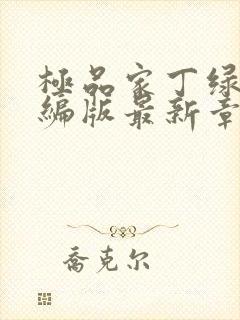 極品家丁绿
编版最新章
喬克尔